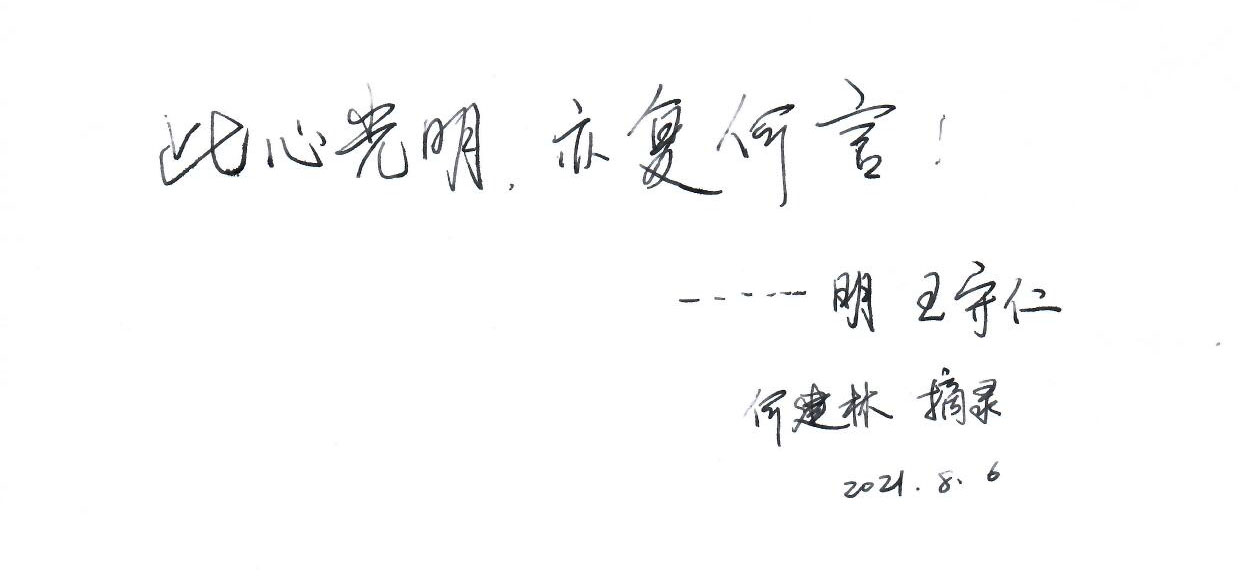 此心光明,亦复何言!
-----明 王守仁
何建林 摘录
2021.8.6